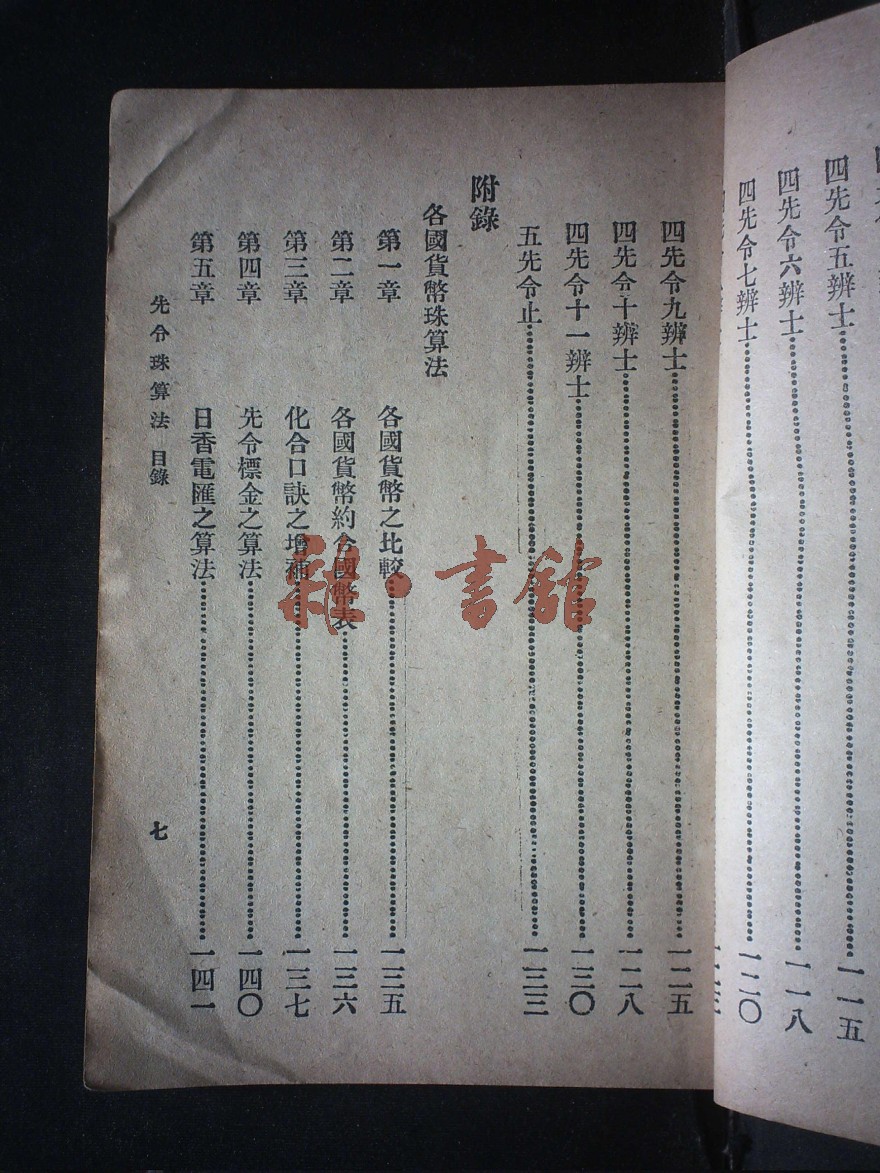 四先令五辨士 一一五
四先令六辨士 一一八
四先令七辨士 一二〇
四先令九辨士 一二五
四先令十辨士 一二八
四先令十一辨士 一三〇
五先令止 一三三
附錄
各國貨幣珠算法
第一章 各國貨幣之比較 一三五
第二章 各國貨幣約合國幣表 一三六
第三章 化合口訣之增補 一三七
第四章 先令標金之算法 一四〇
第五章 日香電匯之算法 一四一
先令珠算法 目錄 七
雜·書館